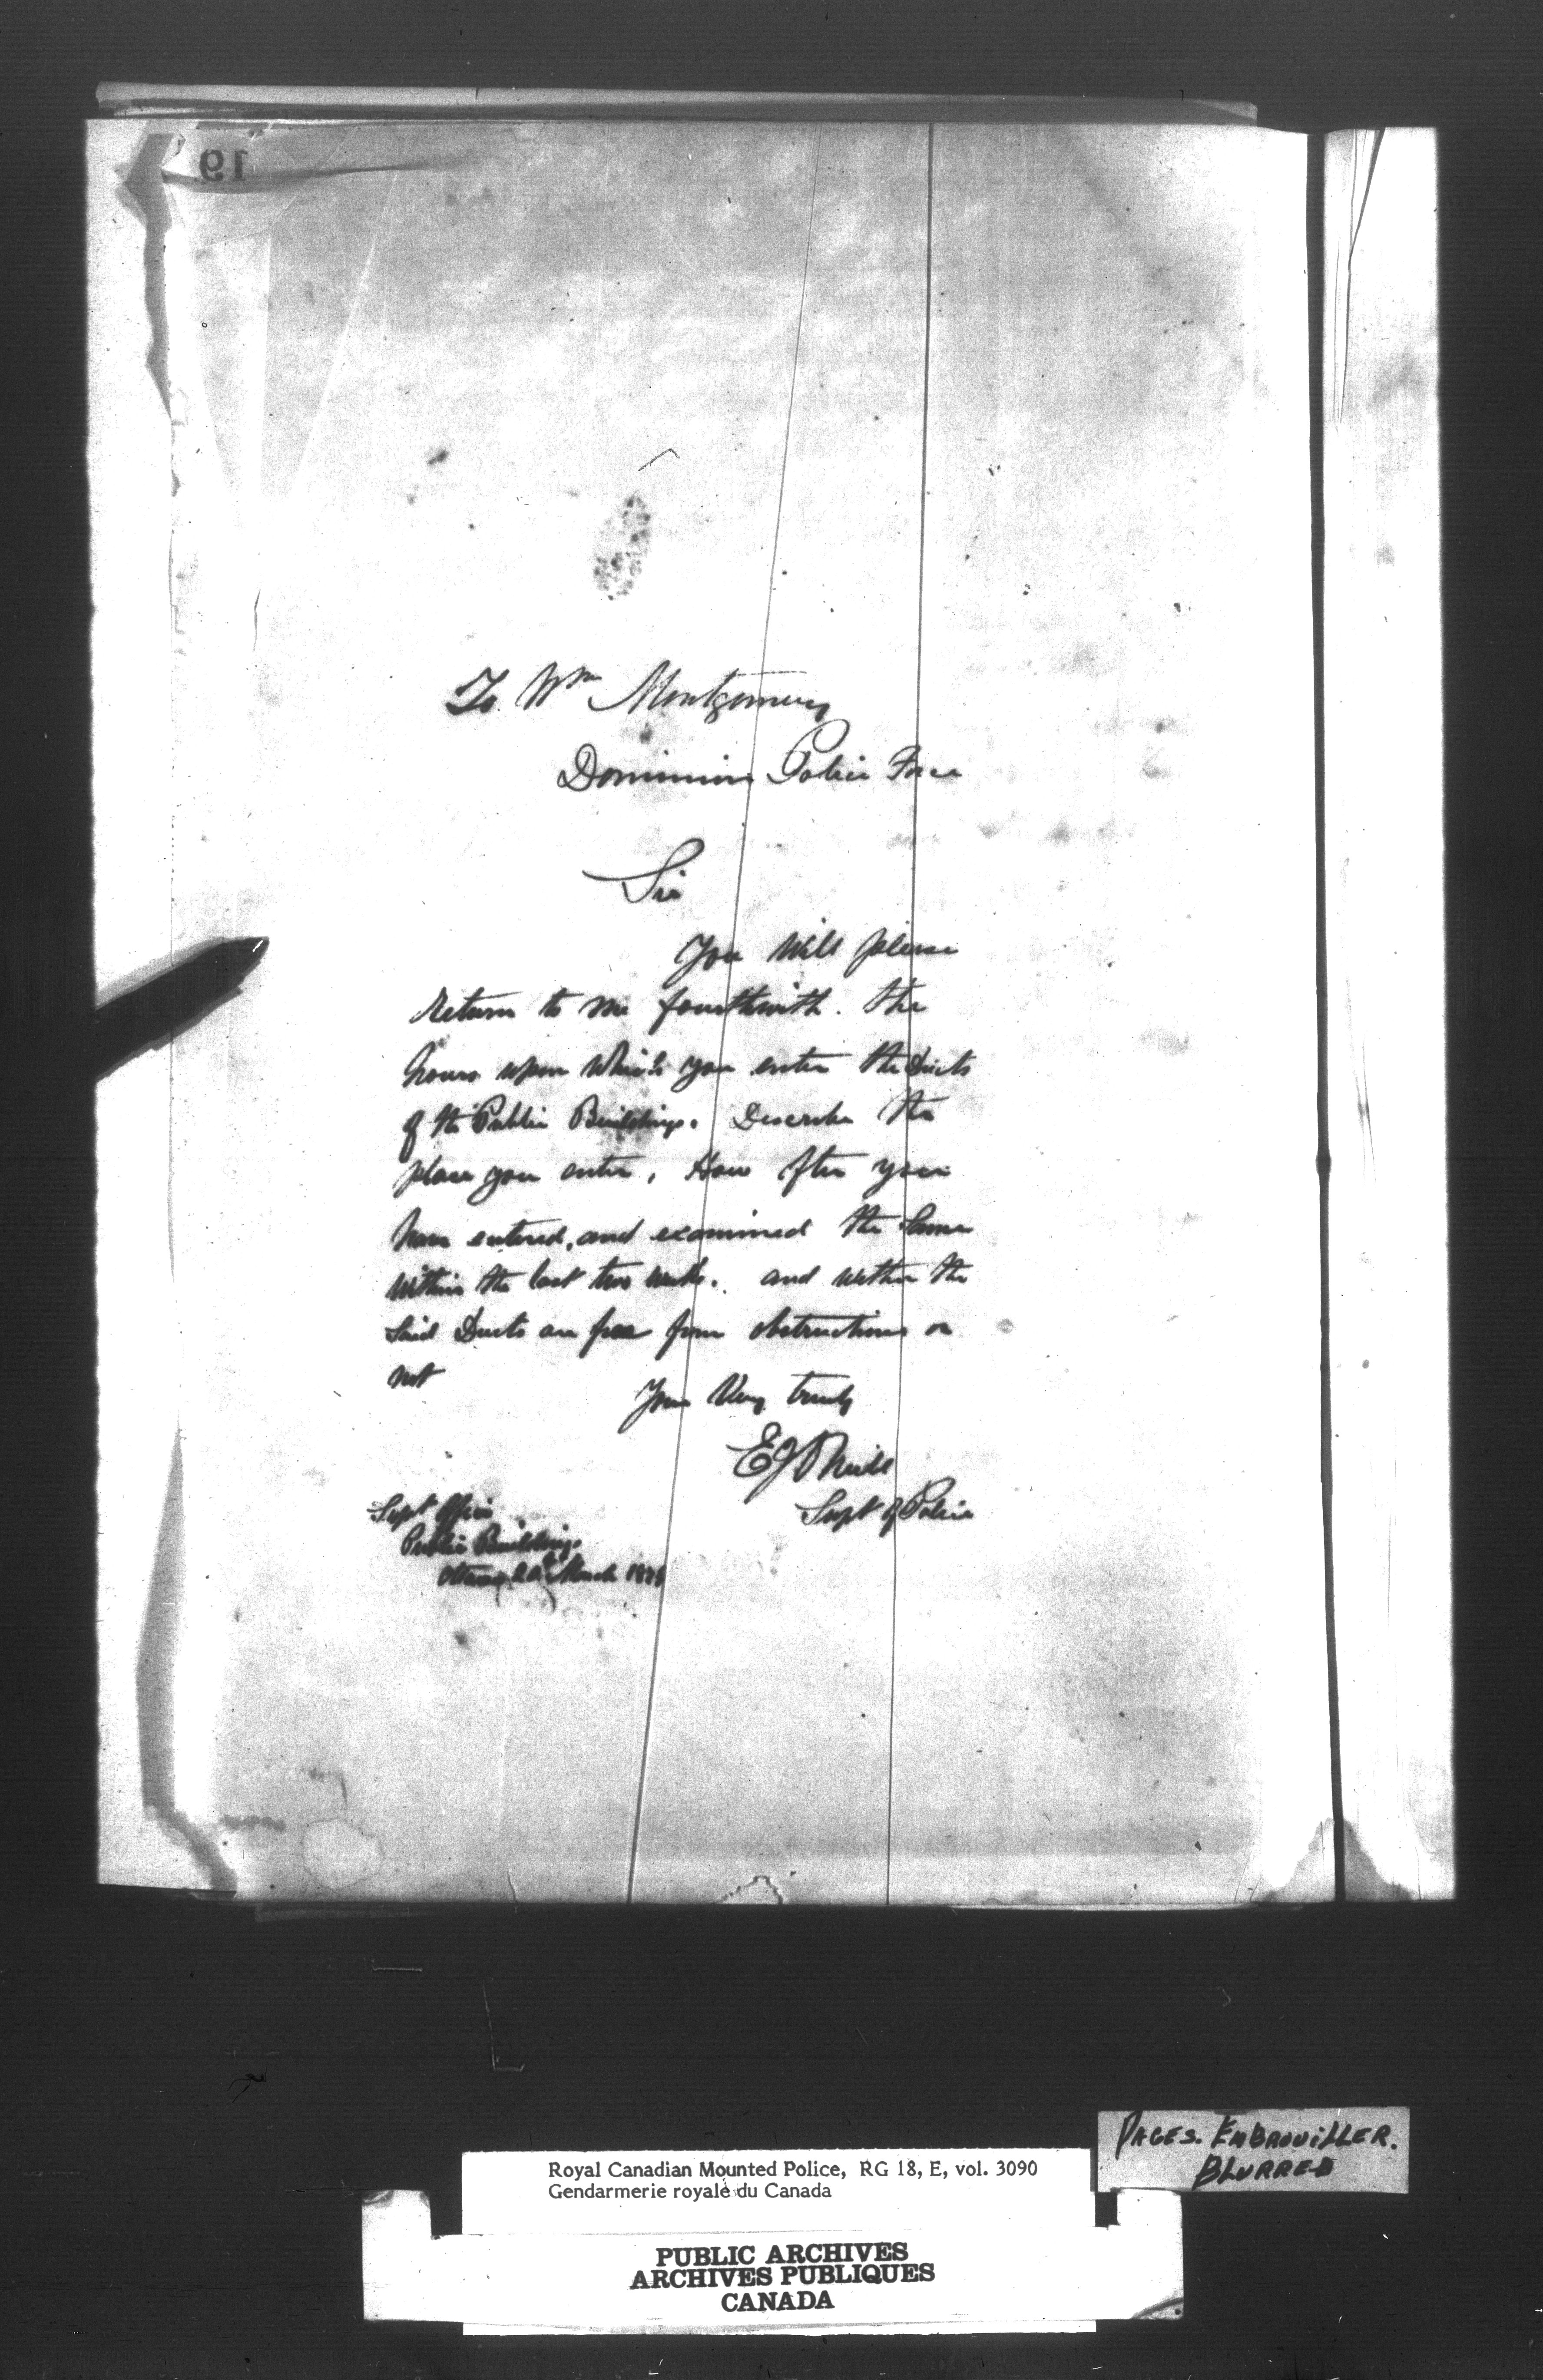 19
To Wm Montgomery
Dominion Police Force
Sir
You will please
return to me fourthwith. the
hours upon which you enter the Ducts
of the Public Buildings. Describe the
place you enter, How often you
have entered, and examined the same
within the last two weeks. and wether the
said Ducts are free from obstructions or
not
Your Very truly
EJ O'Neill
Supt of Police
Supt Office
Public Buildings
Ottawa March
PAGES. EMBROUILLER.
BLURRED
Royal Canadian Mounted Police, RG 18, E, vol. 3090
Gendarmerie royale du Canada
PUBLIC ARCHIVES
ARCHIVES PUBLIQUES
CANADA